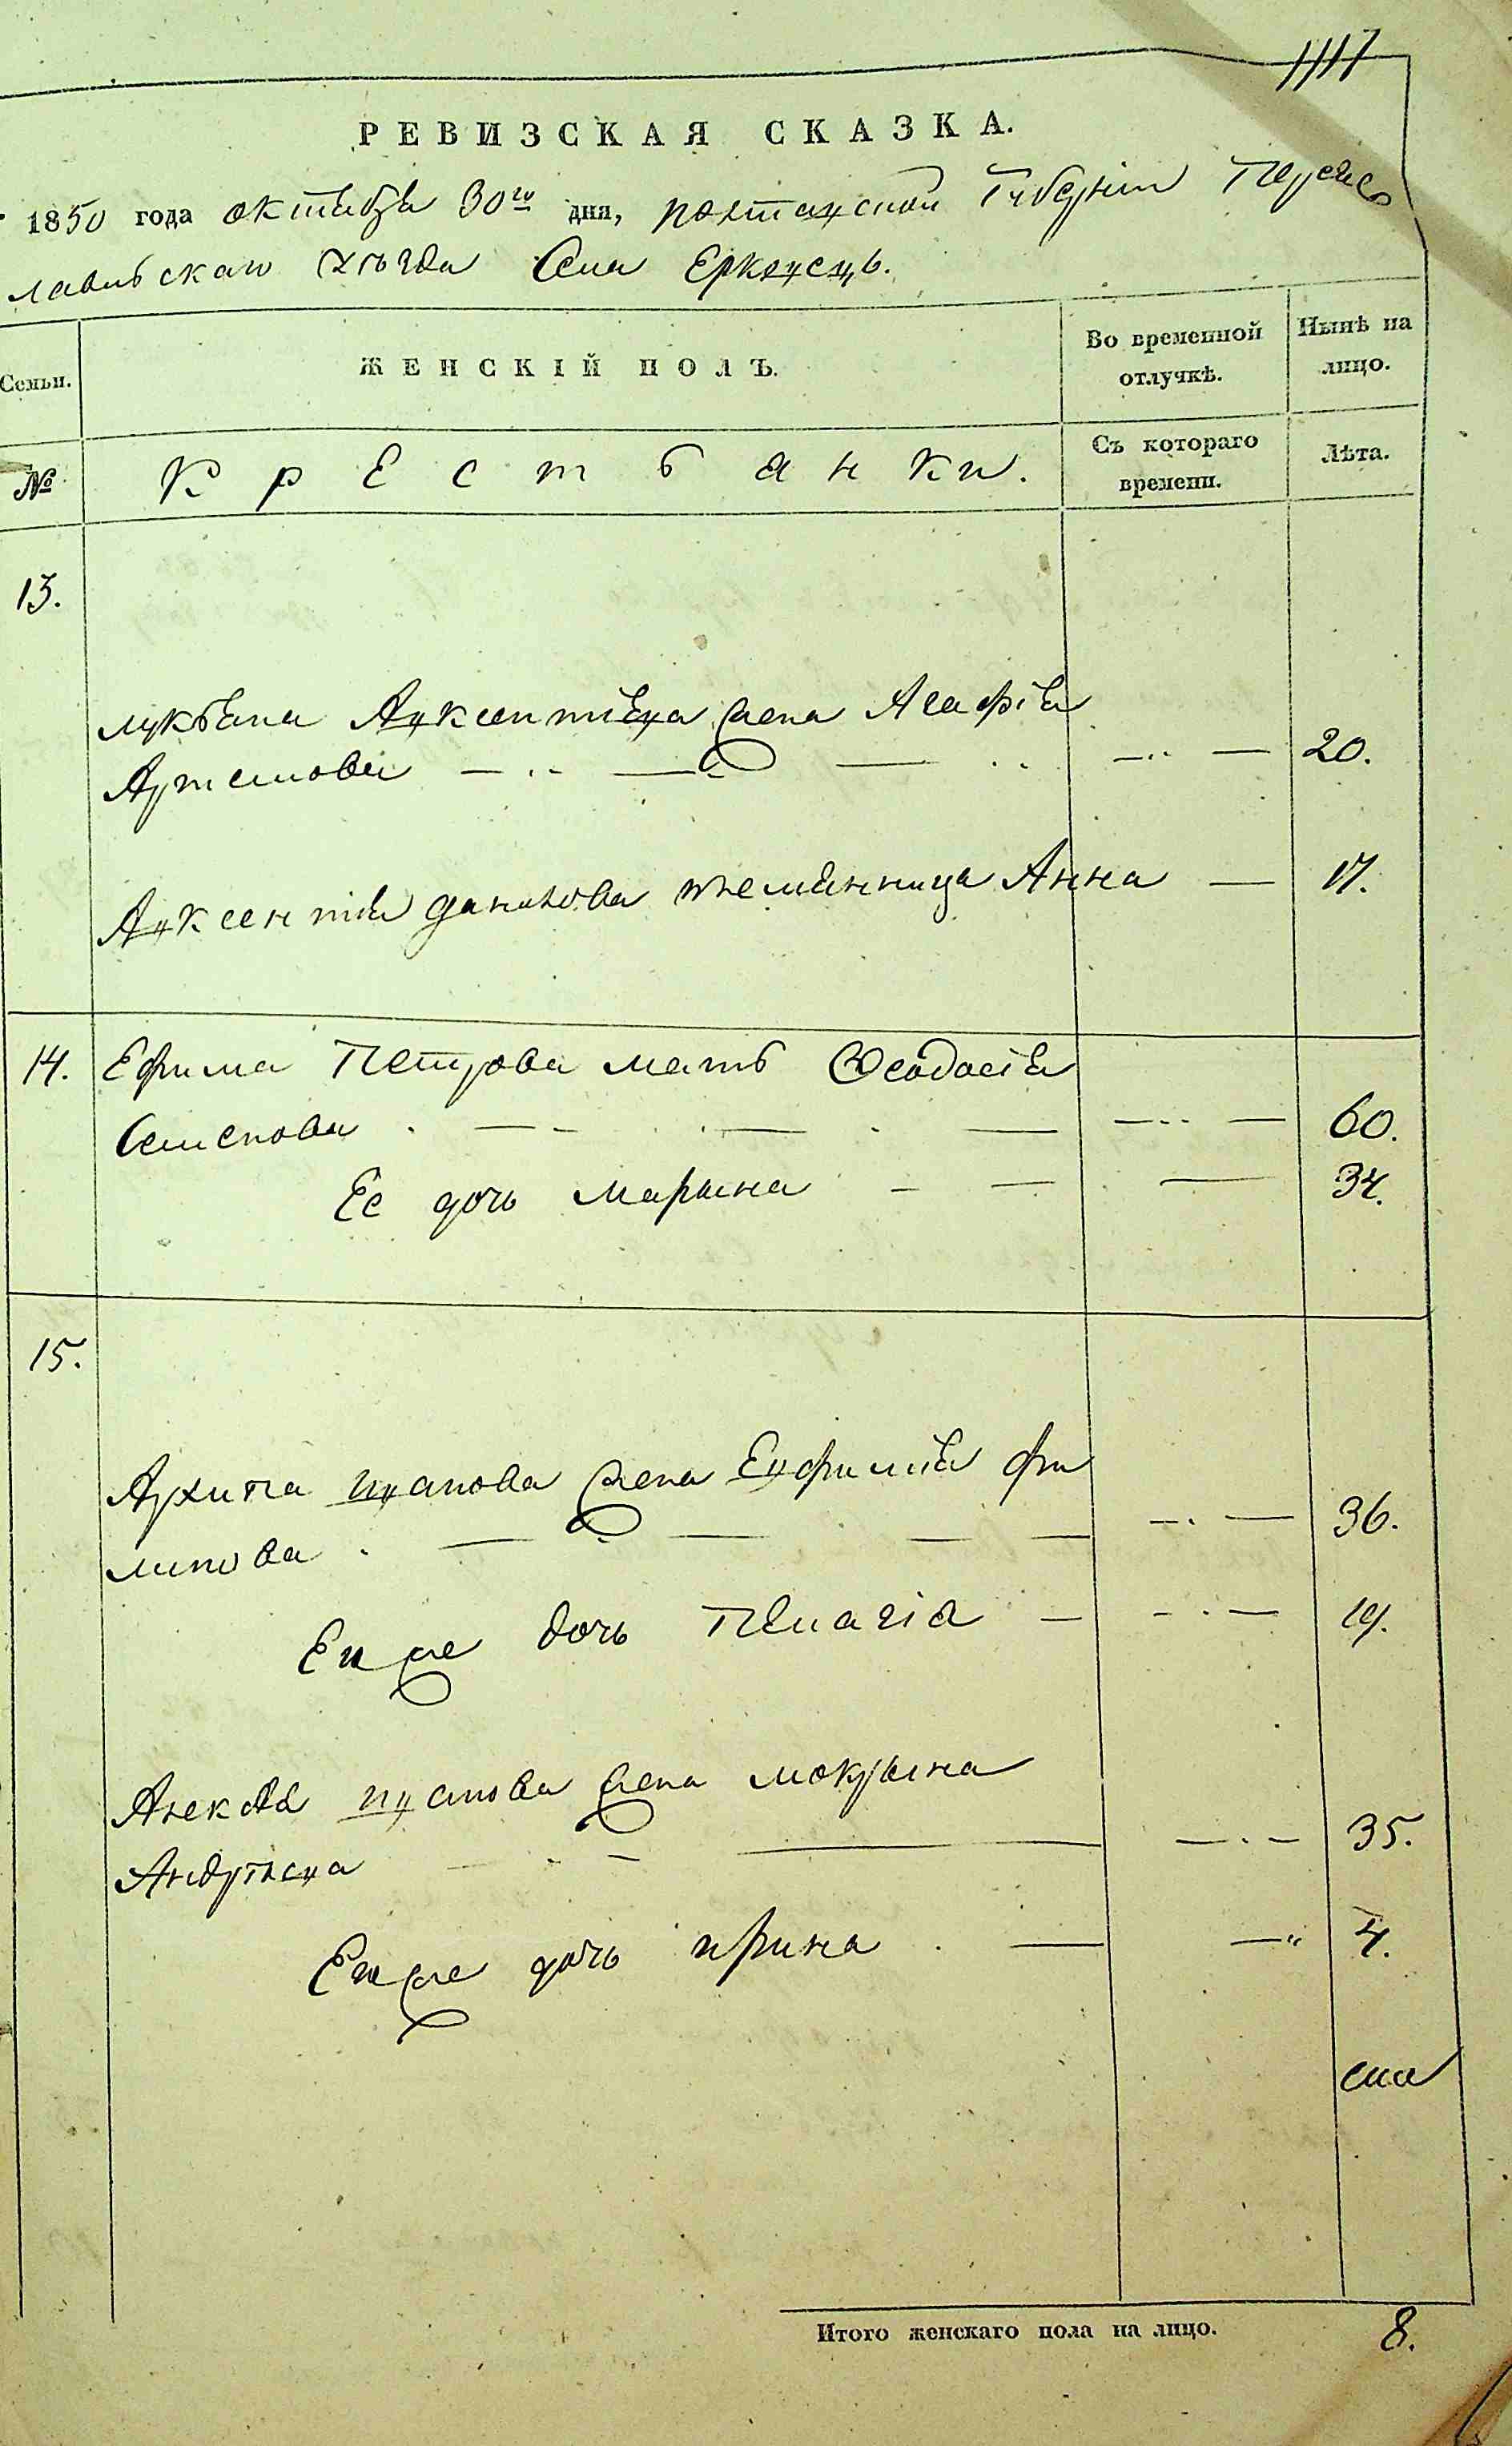 РЕВИЗСКАЯ СКАЗКА.
1850 года октября 30го дня, полтавской Губернiи Переяс
лавльскаго уѣзда Села Ерковець.
Семьи.
ЖЕНСКІЙ ПОЛЪ.
Во временной отлучкѣ.
Нынѣ на лицо.
№
Крестьянки.
Съ котораго времени.
Лѣта.
13.
лукьяна Авксентiева жена Агафiя
Артемова 20.
Авксентiя данилова племянница Анна 17.
14. Ефима Петрова мать Феодосiя
Семенова 60.
Ее дочь марына 34.
15.
Архипа иванова жена Евфимiя фи
липова 36.
Ея же дочь Пелагiя 19.
Алексѣя иванова жена мокрына
Андреева 35.
Ея же дочь ирина 4.
Итого женскаго пола на лицо. 8.